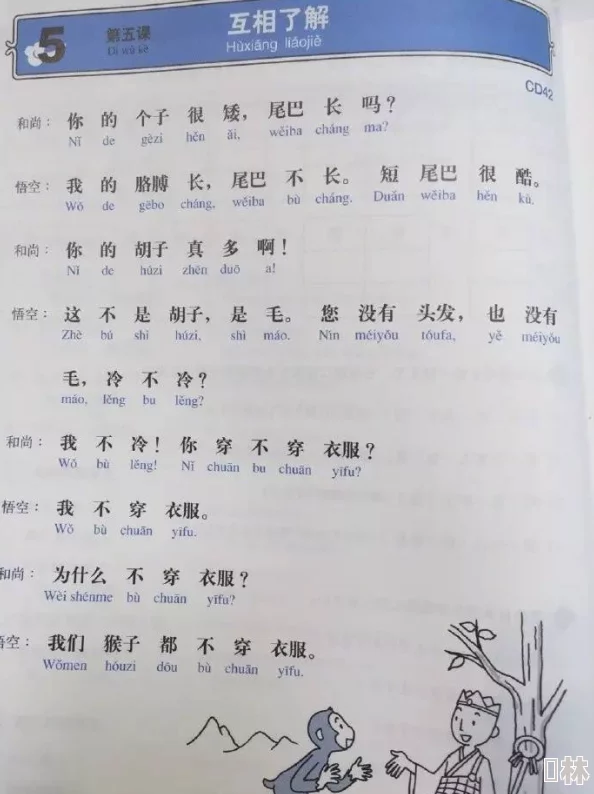 5 第五课 互相了解
Dì wǔ kè Hùxiāng liǎojiě
CD42
和尚： 你 的 个子 很 矮， 尾巴 长 吗？
Nǐ de gèzi hěn ǎi, wěiba cháng ma?
悟空： 我 的 胳膊 长， 尾巴 不 长。 短 尾巴 很 酷。
Wǒ de gēbo cháng, wěiba bù cháng. Duǎn wěiba hěn kù.
和尚： 你 的 胡子 真 多 啊！
Nǐ de húzi zhēn duō a!
悟空： 这 不 是 胡子， 是 毛。 您 没有 头发， 也 没有
Zhè bú shì húzi, shì máo. Nín méiyǒu tóufa, yě méiyǒu
毛， 冷 不 冷？
máo, lěng bu lěng?
和尚： 我 不 冷！ 你 穿 不 穿 衣服？
Wǒ bù lěng! Nǐ chuān bu chuān yīfu?
悟空： 我 不 穿 衣服。
Wǒ bù chuān yīfu.
和尚： 为什么 不 穿 衣服？
Wèi shénme bù chuān yīfu?
悟空： 我们 猴子 都 不 穿 衣服。
Wǒmen hóuzi dōu bù chuān yīfu.
林